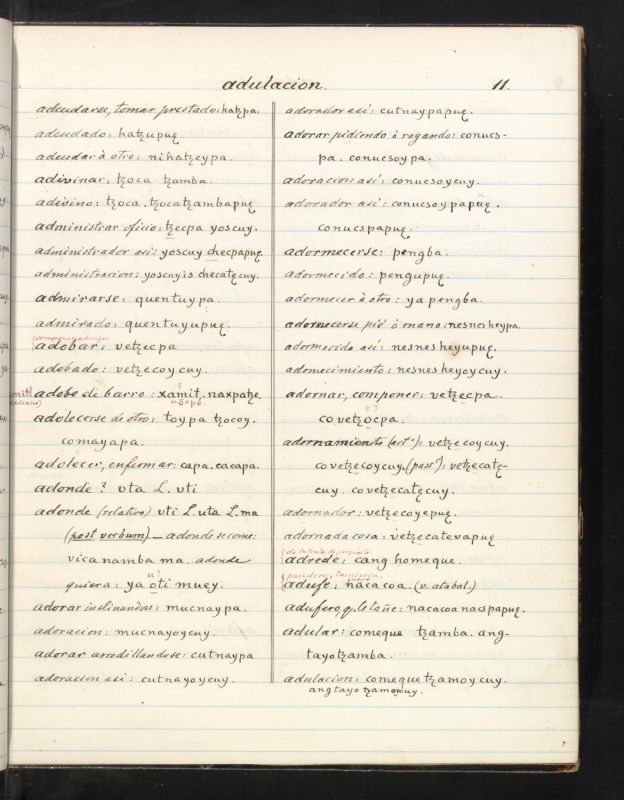 adulacion.
11.
adeudarse, tomar prestado: hatꜩpa.
adeudado: hatꜩupuȩ
adeudar à otro: nihatꜩeypa.
adivinar: tꜩoca tꜩamba.
adivino: tꜩoca. tꜩocatꜩambapuȩ
administrar oficio: tꜩecpa yoscuy.
administrador asi: yoscuy checpapuȩ.
administracion: yoscuyis checatȩcuy.
admirarse: quentuypa.
admirado: quentuyupuȩ.
adobar: vetꜩecpa
adobado: vetꜩecoycuy.
adobe de barro: xamit. naxpatꜩe.
adolecerse de otro: toypa tꜩocoy.
comayapa.
adolecer, enfermar: capa. caeapa.
adonde? uta L. uti
adonde (relativo) uti L. uta L. ma
(post verbum). — adonde se come:
vicanamba ma. adonde
quiera: ya oti muey.
adorar inclinandose: mucnaypa.
adoracion: mucnayoycuy.
adorar arrodillandose: cutnaypa
adoracion asi: cutnayoycuy.
adorador asi: cutnaypapuȩ.
adorar pidiendo ò rogando: conucs-
pa. conucsoypa.
adoracion asi: conucsoycuy.
adorador asi: conucsoypapuȩ.
conucspapuȩ.
adormecerse: pengba.
adormecido: pengupuȩ.
adormecer à otro: ya pengba.
adormecerse pié ò mano: nesnesheypa.
adormecido asi: nesnesheyupuȩ.
adormecimiento: nesnesheyoycuy.
adornar, componer: vetꜩecpa.
covetꜩocpa.
adornamiento (act.ᵒ): vetꜩecoycuy.
covetꜩecoycuy. (pass.ᵒ): vetꜩecatȩ-
cuy. covetꜩecatȩcuy.
adornador: vetꜩecoyepuȩ.
adornada cosa: vetꜩecatevapuȩ
adrede: cang homeque.
pandero, tamborin.
adufe: nacacoa. (v. atabal.)
adufero q. le tañe: nacacoa nacspapuȩ.
adular: comeque tꜩamba. ang-
tayotꜩamba.
adulacion: comequetꜩamoycuy.
angtayotꜩamoycuy.